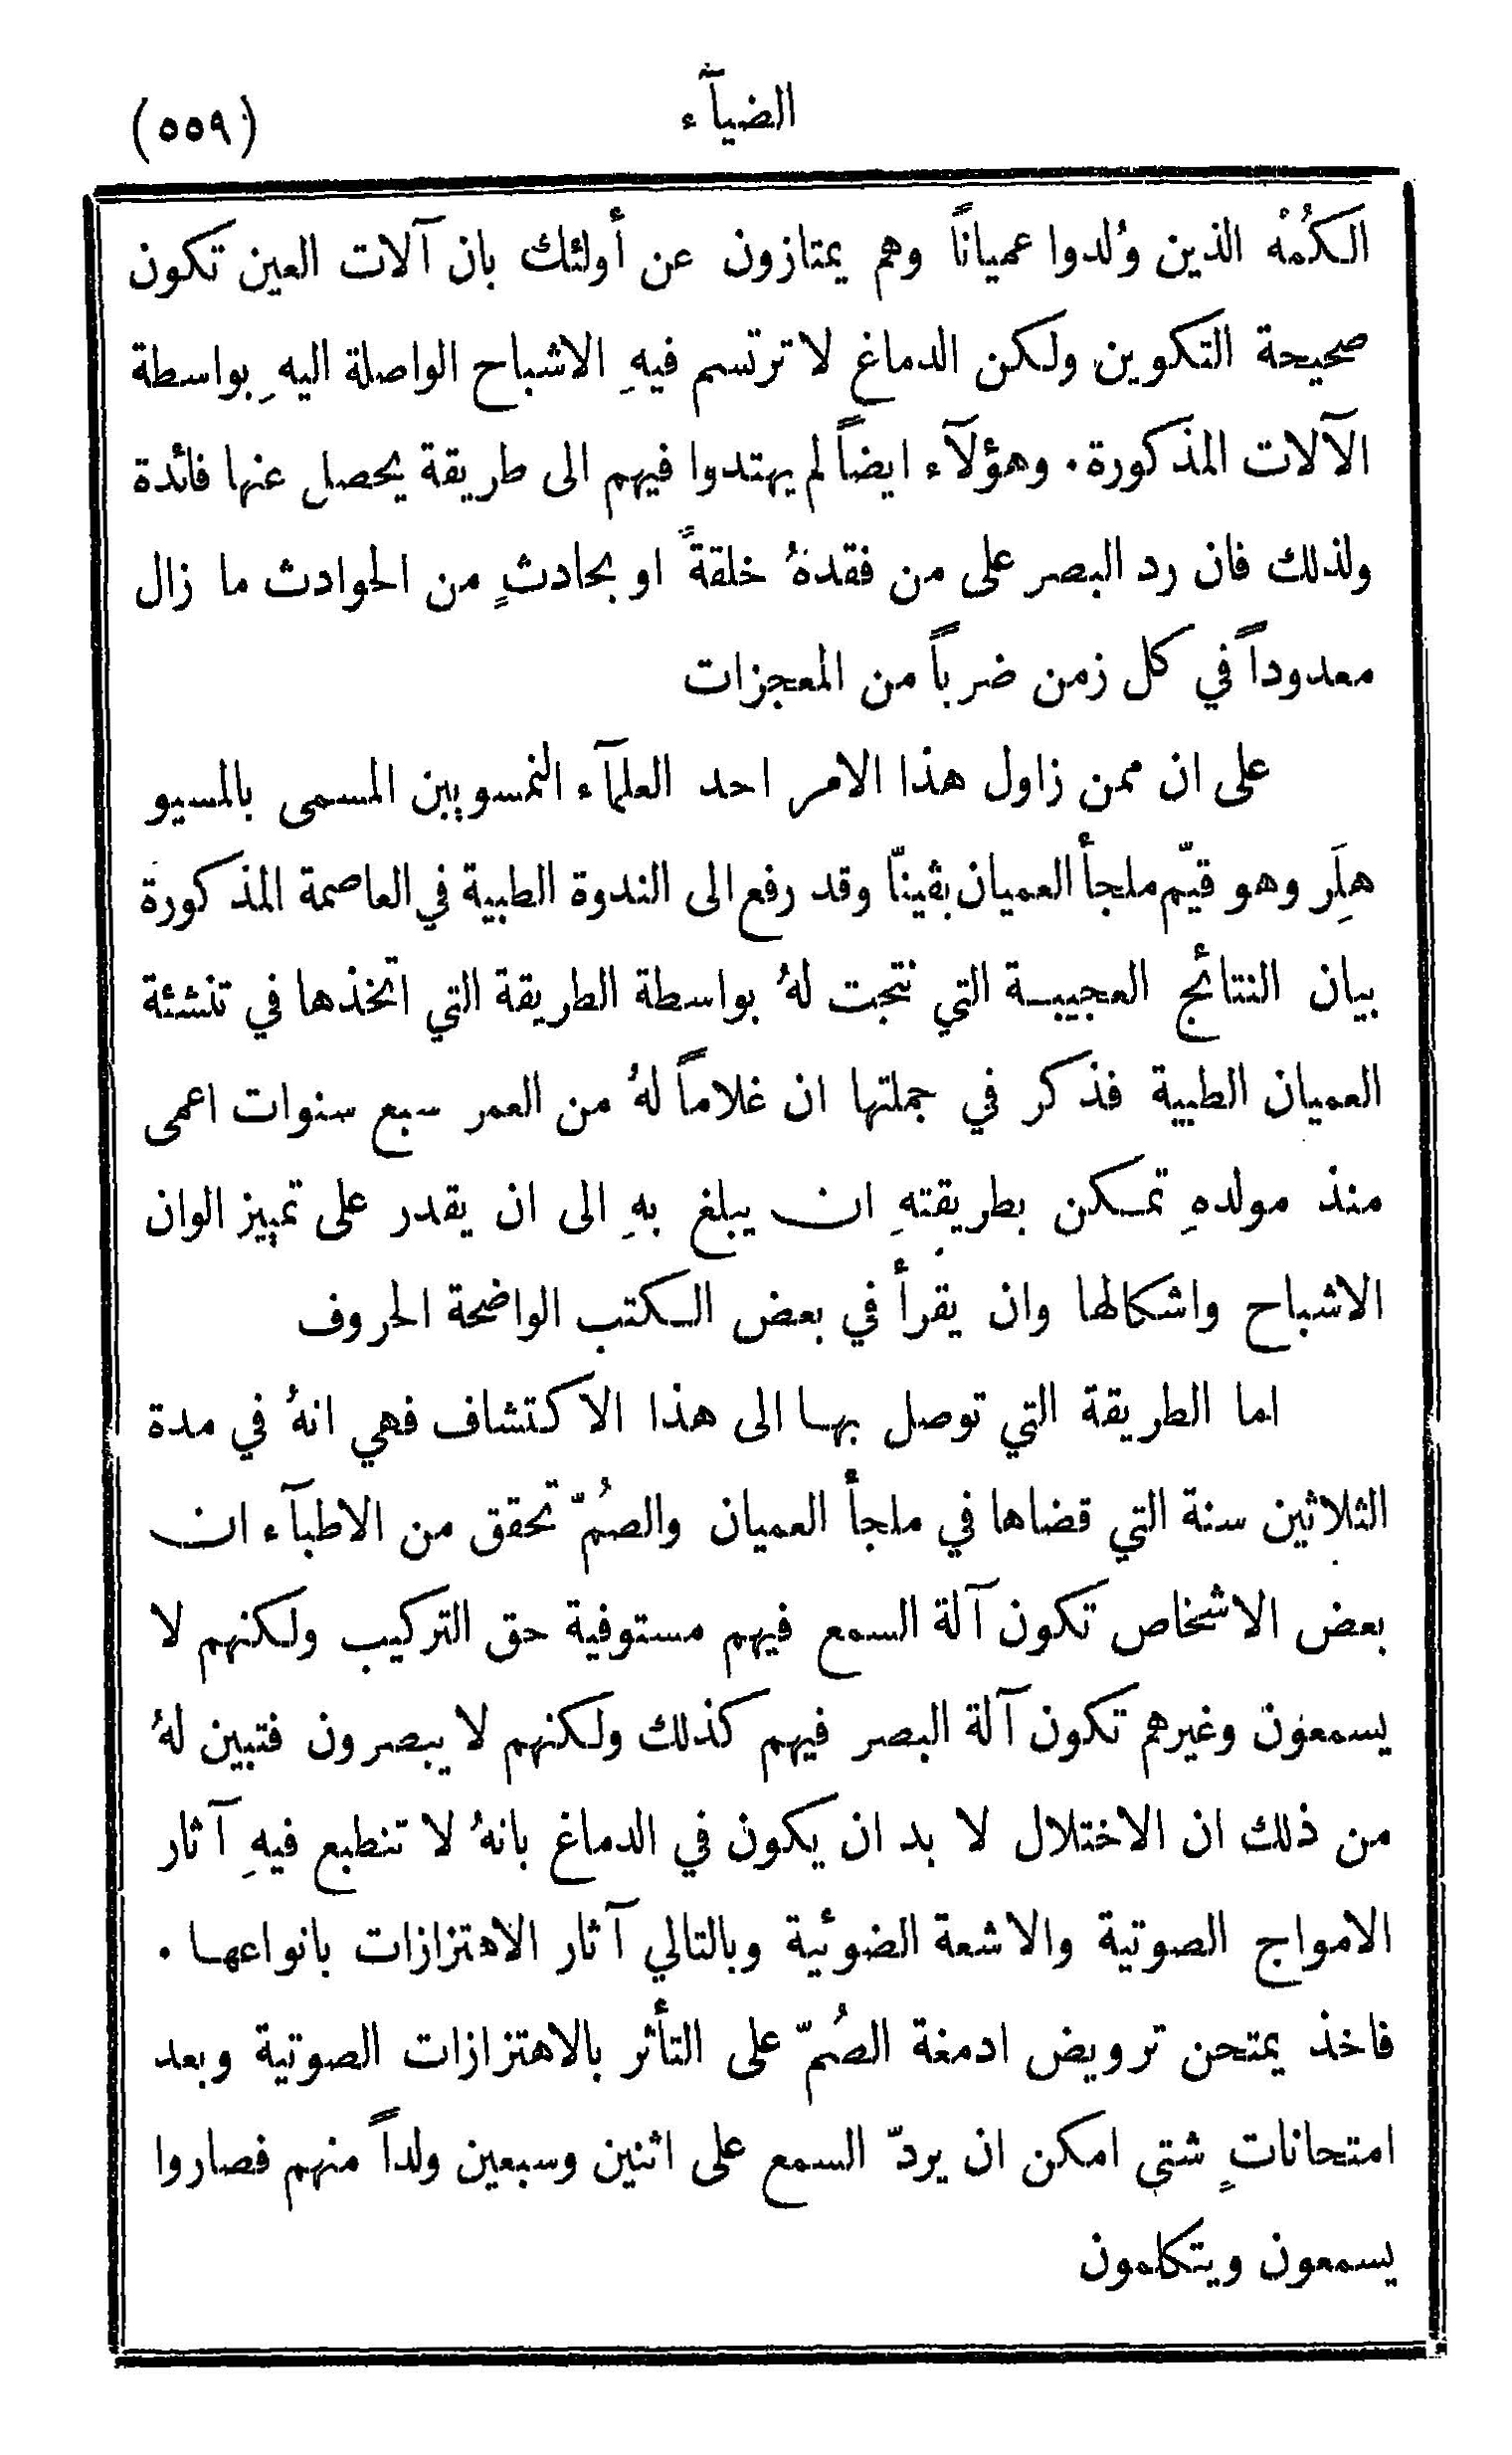 الضيآء
(٥٥٩)
الكُمْه الذين وُلدوا عمياناً وهم يمتازون عن أولئك بان آلات العين تكون
صحيحة التكوين ولكن الدماغ لا ترتسم فيهِ الاشباح الواصلة اليهِ بواسطة
الآلات المذكورة. وهؤلآء ايضاً لم يهتدوا فيهم الى طريقة يحصل عنها فائدة
ولذلك فان رد البصر على من فقدهُ خلقةً او بحادثٍ من الحوادث ما زال
معدوداً في كل زمن ضرباً من المعجزات
على ان ممن زاول هذا الامر احد العلمآء النمسويين المسمى بالمسيو
هلِرَ وهو قيّم ملجأ العميان بڤينّا وقد رفع الى الندوة الطبية في العاصمة المذكورة
بيان النتائج العجيبة التي نتجت لهُ بواسطة الطريقة التي اتخذها في تنشئة
العميان الطبية فذكر في جملتها ان غلاماً لهُ من العمر سبع سنوات اعمى
منذ مولدهِ تمكن بطريقتهِ ان يبلغ بهِ الى ان يقدر على تمييز الوان
الاشباح واشكالها وان يقرأ في بعض الكتب الواضحة الحروف
اما الطريقة التي توصل بها الى هذا الاكتشاف فهي انهُ في مدة
الثلاثين سنة التي قضاها في ملجأ العميان والصُمّ تحقق من الاطبآء ان
بعض الاشخاص تكون آلة السمع فيهم مستوفية حق التركيب ولكنهم لا
يسمعون وغيرهم تكون آلة البصر فيهم كذلك ولكنهم لا يبصرون فتبين لهُ
من ذلك ان الاختلال لا بد ان يكون في الدماغ بانهُ لا تنطبع فيهِ آثار
الامواج الصوتية والاشعة الضوئية وبالتالي آثار الاهتزازات بانواعها.
فاخذ يمتحن ترويض ادمغة الصُمّ على التأثر بالاهتزازات الصوتية وبعد
امتحاناتٍ شتى امكن ان يردّ السمع على اثنين وسبعين ولداً منهم فصاروا
يسمعون ويتكلمون